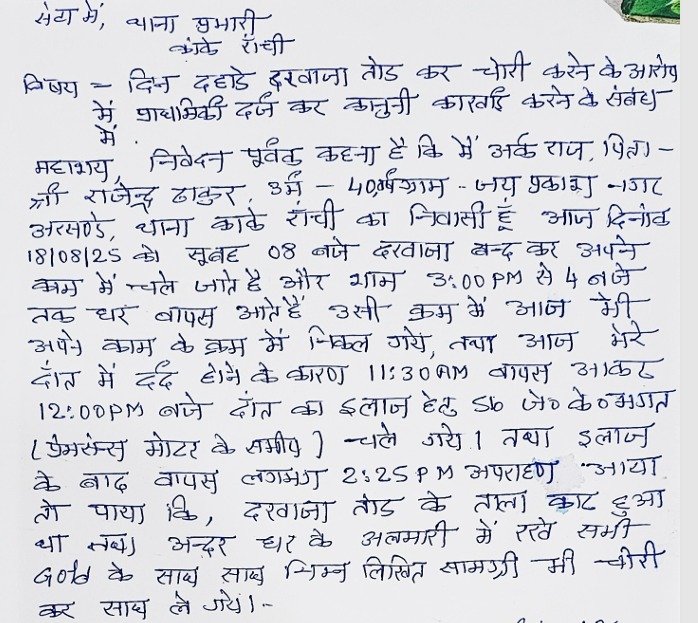 सेवा में, थाना प्रभारी
कांके राँची
विषय = दिन दहाडे दरवाजा तोड कर चोरी करने के आरोप
में प्राथमिकी दर्ज कर कानुनी कारवाई करने के संबंध
में.
महाशय, निवेदन पूर्वक कहना है कि मैं अर्क राज, पिता -
श्री राजेन्द्र ठाकुर, उर्म - 40वर्ष ग्राम - जय प्रकाश नगर
अरसण्डे, थाना कांके राँची का निवासी हूँ आज दिनांक
18/08/25 को सूबह 08 बजे दरवाजा बन्द कर अपने
काम में चले जाते है और शाम 3:00 PM से 4 बजे
तक घर वापस आते हैं उसी क्रम में आज भी
अपने काम के क्रम में निकल गये, तथा आज मेरे
दाँत में दर्द होने के कारण 11:30 AM वापस आकर
12:00 PM बजे दाँत का इलाज हेतु
(प्रेमसंन्स मोटर के समीप) चले गये। तथा इलाज
के बाद वापस लगभग 2:25 PM अपराहण आया
तो पाया कि, दरवाजा तोड के ताला काट हुआ
था तथा अन्दर घर के अलमारी में रखे सभी
Gold के साथ साथ निम्न लिखित सामग्री भी चोरी
कर साथ ले गये।-